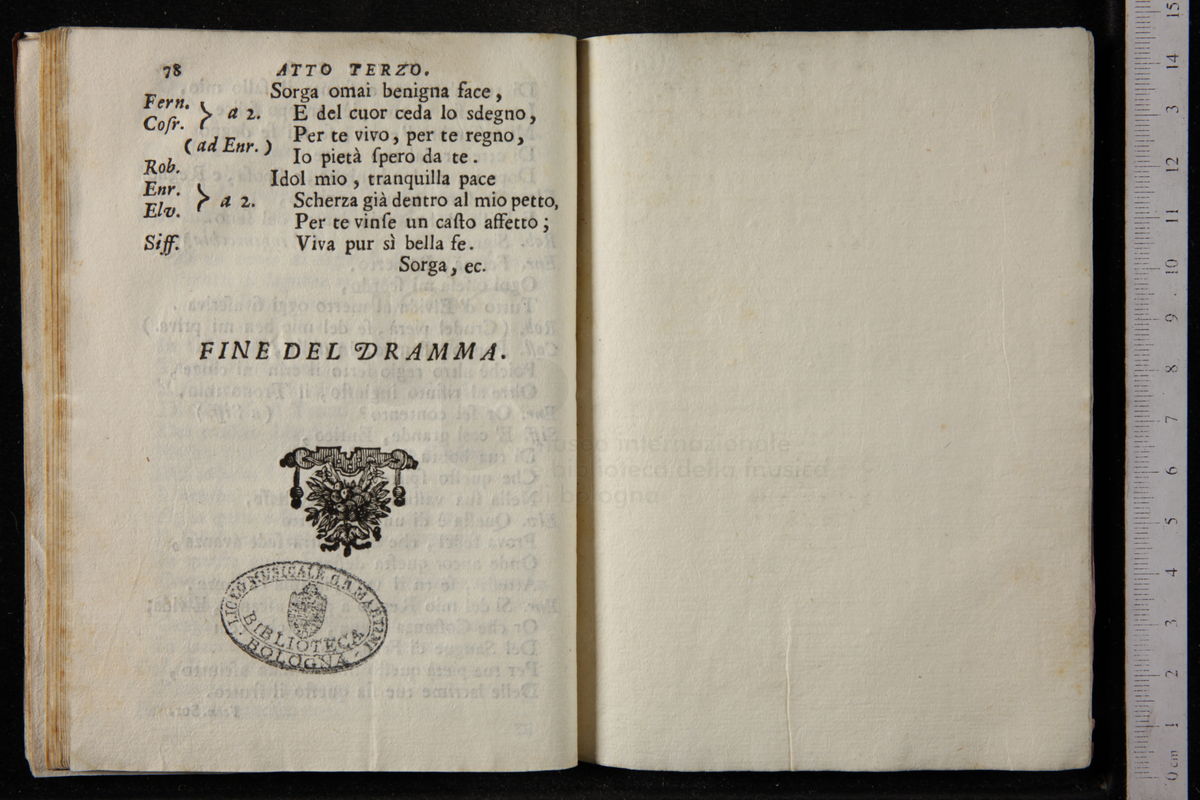 78 ATTO TERZO.
Sorga omai benigna face,
Fern. } a 2. E del cuor ceda lo sdegno,
Coſr. Per te vivo, per te regno,
(ad Enr.)
Rob. Io pietà ſpero da te.
Idol mio, tranquilla pace
Enr. } a 2. Scherza già dentro al mio petto,
Elv. Per te vinſe un caſto affetto;
Siff. Viva pur sì bella fe.
Sorga, ec.
FINE DEL DRAMMA.
LICEO MUSICALE G.B. MARTINI
BIBLIOTECA
BOLOGNA
museo internazionale
biblioteca della musica
bologna
0 cm 1 2 3 4 5 6 7 8 9 10 11 12 13 14 15